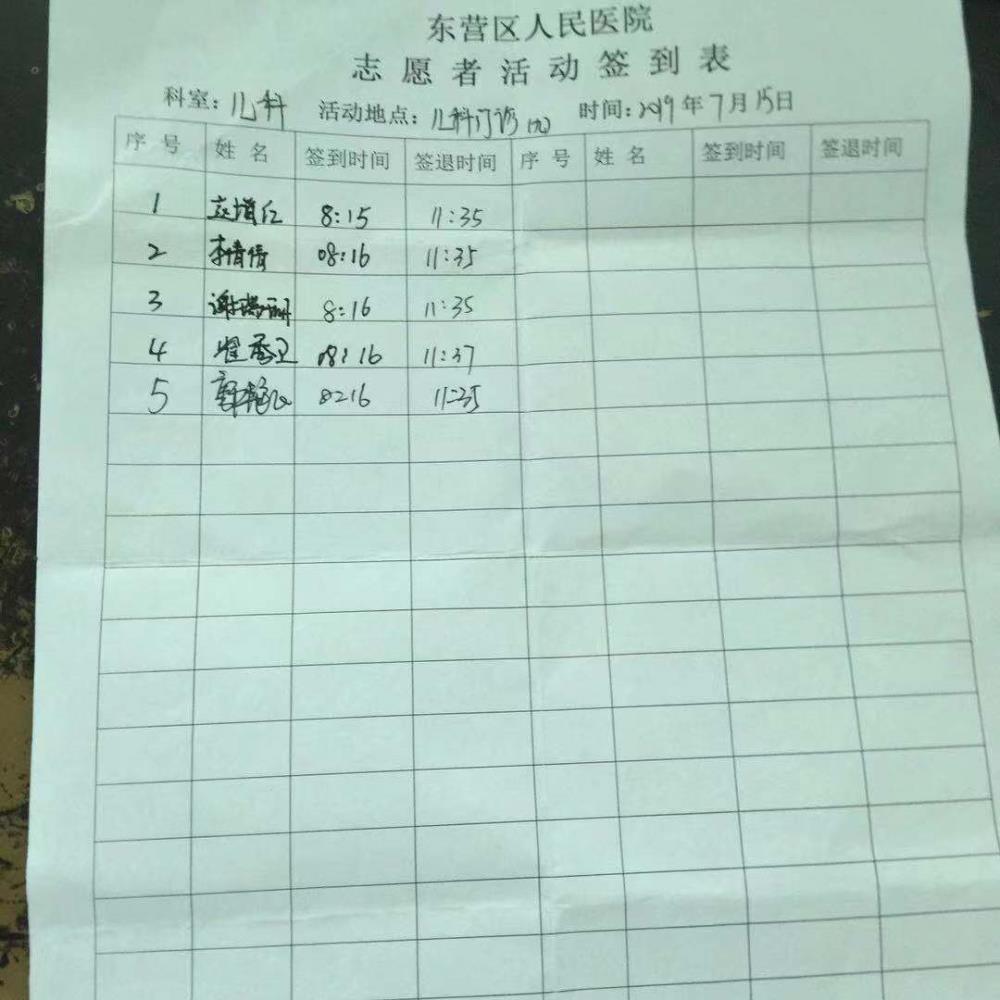 东营区人民医院
志愿者活动签到表
科室：儿科 活动地点：儿科门诊 时间：2019年7月15日
序号 姓名 签到时间 签退时间 序号 姓名 签到时间 签退时间
1 8:15 11:35
2 李倩倩 08:16 11:35
3 8:16 11:35
4 08:16 11:37
5 8:16 11:35